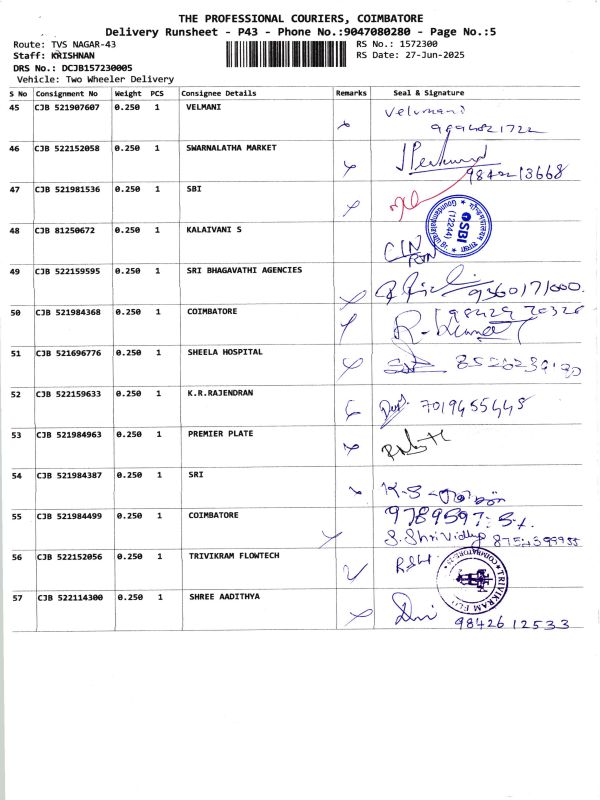 THE PROFESSIONAL COURIERS, COIMBATORE
Delivery Runsheet - P43 - Phone No.:9047080280 - Page No.:5
Route: TVS NAGAR-43 RS No.: 1572300
Staff: KRISHNAN RS Date: 27-Jun-2025
DRS No.: DCJB157230005
Vehicle: Two Wheeler Delivery
S No Consignment No Weight PCS Consignee Details Remarks Seal & Signature
45 CJB 521907607 0.250 1 VELMANI Velumani
9994821722
46 CJB 522152058 0.250 1 SWARNALATHA MARKET
9842213668
47 CJB 521981536 0.250 1 SBI
SBI (12244)
48 CJB 81250672 0.250 1 KALAIVANI S
49 CJB 522159595 0.250 1 SRI BHAGAVATHI AGENCIES 9360171000.
50 CJB 521984368 0.250 1 COIMBATORE
R-Kumar
51 CJB 521696776 0.250 1 SHEELA HOSPITAL
52 CJB 522159633 0.250 1 K.R.RAJENDRAN 7019455448
53 CJB 521984963 0.250 1 PREMIER PLATE
54 CJB 521984387 0.250 1 SRI K-S
55 CJB 521984499 0.250 1 COIMBATORE
S.Shri Vidhya
56 CJB 522152056 0.250 1 TRIVIKRAM FLOWTECH
57 CJB 522114300 0.250 1 SHREE AADITHYA
9842612533